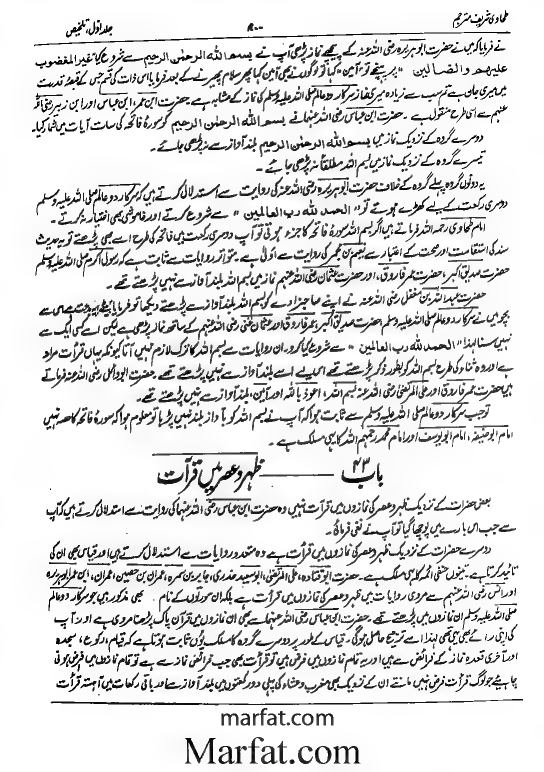 طحاوی شریف مترجم ۸۰۰ جلد اول، تلخیص
نے فرمایا کہ میں نے حضرت ابو ہریرہ رضی اللہ عنہ کے پیچھے نماز پڑھی آپ نے بسم اللہ الرحمٰن الرحیم سے شروع کیا غیر المغضوب
علیہم ولا الضالین " پر پہنچے تو "آمین" کہا تو لوگوں نے بھی آمین کہا پھر سلام پھیرنے کے بعد فرمایا اس ذات کی قسم جس کے قبضۂ قدرت
میں میری جان ہے تم سب سے زیادہ میری نماز سرکار دو عالم صلی اللہ علیہ وسلم کی نماز کے مشابہ ہے۔ حضرت ابن عمر، ابن عباس اور ابن زبیر رضی اللہ
عنہم سے اسی طرح منقول ہے ۔ حضرت ابن عباس رضی اللہ عنہما نے بسم اللہ الرحمٰن الرحیم کو سورۂ فاتحہ کی سات آیات میں شمار کیا۔
دوسرے گروہ کے نزدیک نماز میں بسم اللہ الرحمٰن الرحیم بلند آواز سے نہ پڑھی جائے ۔
تیسرے گروہ کے نزدیک نماز میں بسم اللہ مطلقاً نہ پڑھی جائے ۔
یہ دونوں گروہ پہلے گروہ کے خلاف حضرت ابو ہریرہ رضی اللہ عنہ کی روایت سے استدلال کرتے ہیں کہ سرکار دو عالم صلی اللہ علیہ وسلم
دوسری رکعت کے لیے کھڑے ہوتے تو " الحمد للہ رب العالمین " سے شروع کرتے اور خاموشی بھی اختیار نہ کرتے ۔
امام طحاوی رحمہ اللہ فرماتے ہیں اگر بسم اللہ سورۂ فاتحہ کا جزء ہوتی تو آپ دوسری رکعت میں فاتحہ کی طرح اسے بھی پڑھتے تو یہ حدیث
سند کی استقامت اور صحت کے اعتبار سے نعیم بن مجمر کی روایت سے اولیٰ ہے ۔ متواتر روایات سے ثابت ہے کہ رسول اکرم صلی اللہ علیہ وسلم
حضرت صدیق اکبر، حضرت عمر فاروق، اور حضرت عثمان رضی اللہ عنہم نماز میں بسم اللہ بلند آواز سے نہیں پڑھتے تھے ۔
حضرت عبد اللہ بن مغفل رضی اللہ عنہ نے اپنے صاحبزادے کو بسم اللہ بلند آواز سے پڑھتے دیکھا تو فرمایا بیٹے یہ بدعت ہے اس سے
بچو میں نے سرکار دو عالم صلی اللہ علیہ وسلم، حضرت صدیق اکبر، عمر فاروق اور عثمان غنی رضی اللہ عنہم کے ساتھ نماز پڑھی ہے لیکن اسے کسی ایک سے
نہیں سنا لہٰذا " الحمد للہ رب العالمین " سے شروع کیا کرو۔ ان روایات سے بسم اللہ کا ترک لازم نہیں آتا کیونکہ یہاں قرأت مراد
ہے اور وہ ثناء کی طرح بسم اللہ کو بطور ذکر پڑھتے تھے اسی لیے اسے بلند آواز سے نہیں پڑھتے تھے ۔ حضرت ابو وائل رضی اللہ عنہ فرماتے
ہیں حضرت عمر فاروق اور علی المرتضیٰ رضی اللہ عنہما، بسم اللہ، اعوذ باللہ اور آمین، بلند آواز سے نہیں پڑھتے تھے ۔
تو جب سرکار دو عالم صلی اللہ علیہ وسلم سے ثابت ہوا کہ آپ نے بسم اللہ کو بآواز بلند نہیں پڑھا تو معلوم ہوا کہ سورۂ فاتحہ کا حصہ نہیں
امام ابو حنیفہ، امام ابو یوسف اور امام محمد رحمہم اللہ کا یہی مسلک ہے ۔
باب ۴۳ ــــــ ظہر و عصر میں قرأت
بعض حضرات کے نزدیک ظہر و عصر کی نمازوں میں قرأت نہیں وہ حضرت ابن عباس رضی اللہ عنہما کی روایت سے استدلال کرتے ہیں کہ آپ
سے جب اس بارے میں پوچھا گیا تو آپ نے نفی فرمائی۔
دوسرے حضرات کے نزدیک ظہر و عصر کی نمازوں میں قرأت ہے وہ متعدد روایات سے استدلال کرتے ہیں اور قیاس بھی ان کی
تائید کرتا ہے۔ تینوں حنفی ائمہ کا یہی مسلک ہے۔ حضرت ابو قتادہ، علی المرتضیٰ، ابو سعید خدری، جابر بن سمرہ، عمران بن حصین، ابن عمر، ابو ہریرہ
اور انس رضی اللہ عنہم سے مروی روایات میں ظہر و عصر کی نمازوں میں قرأت ہے بلکہ ان سورتوں کے نام بھی مذکور ہیں جو سرکار دو عالم
صلی اللہ علیہ وسلم ان نمازوں میں پڑھتے تھے ۔ حضرت ابن عباس رضی اللہ عنہما سے بھی ان نمازوں میں قرآن پاک پڑھنا مروی ہے اور وہ آپ
کی اپنی رائے بھی تھی لہٰذا اسے ترجیح حاصل ہو گی۔ قیاس کے طور پر دوسرے گروہ کا مسلک یوں ثابت ہوتا ہے کہ قیام، رکوع، سجدہ
اور آخری قعدہ نماز کے فرائض سے ہیں اور یہ تمام نمازوں میں فرض ہیں تو قرأت بھی جب فرائض نماز سے ہے تو تمام نمازوں میں فرض ہونی
چاہیئے جو لوگ قرأت فرض نہیں مانتے ان کے نزدیک بھی مغرب و عشاء کی پہلی دو رکعتوں میں بلند آواز سے اور باقی رکعات میں آہستہ قرأت
marfat.com
Marfat.com